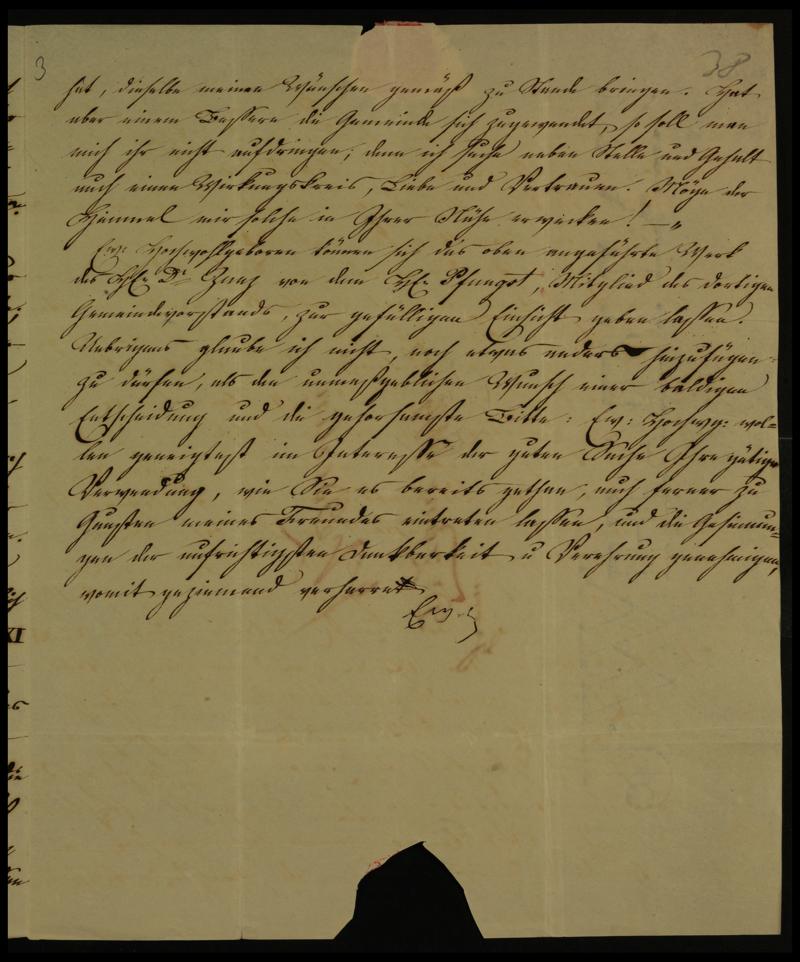 3
38
hat, dieselbe meinen Wünschen gemäß zu Stande bringen. Hat
aber einem Bessern die Gemeinde sich zugewendet, so soll man
mich ihr nicht aufdringen; denn ich suche neben Stelle und Gehalt
auch einen Wirkungskreis, Liebe und Vertrauen. Möge der
Himmel mir solche in Ihrer Nähe erwecken! —"
Ew: Hochwohlgeboren können sich das oben angeführte Werk
des H: Dr Zunz von dem H: Pfungst, Mitglied des dortigen
Gemeindevorstands, zur gefälligen Einsicht geben lassen.
Uebrigens glaube ich nicht, noch etwas anders hinzufügen
zu dürfen, als den unmaßgeblichen Wunsch einer baldigen
Entscheidung und die gehorsamste Bitte: Ew: Hochwg: wol=
len geneigtest im Interesse der guten Sache Ihre gütige
Verwendung, wie Sie es bereits gethan, auch ferner zu
Gunsten meines Freundes eintreten lassen, und die Gesinnun=
gen der aufrichtigsten Dankbarkeit u Verehrung genehmigen,
womit geziemend verharret
Ew: